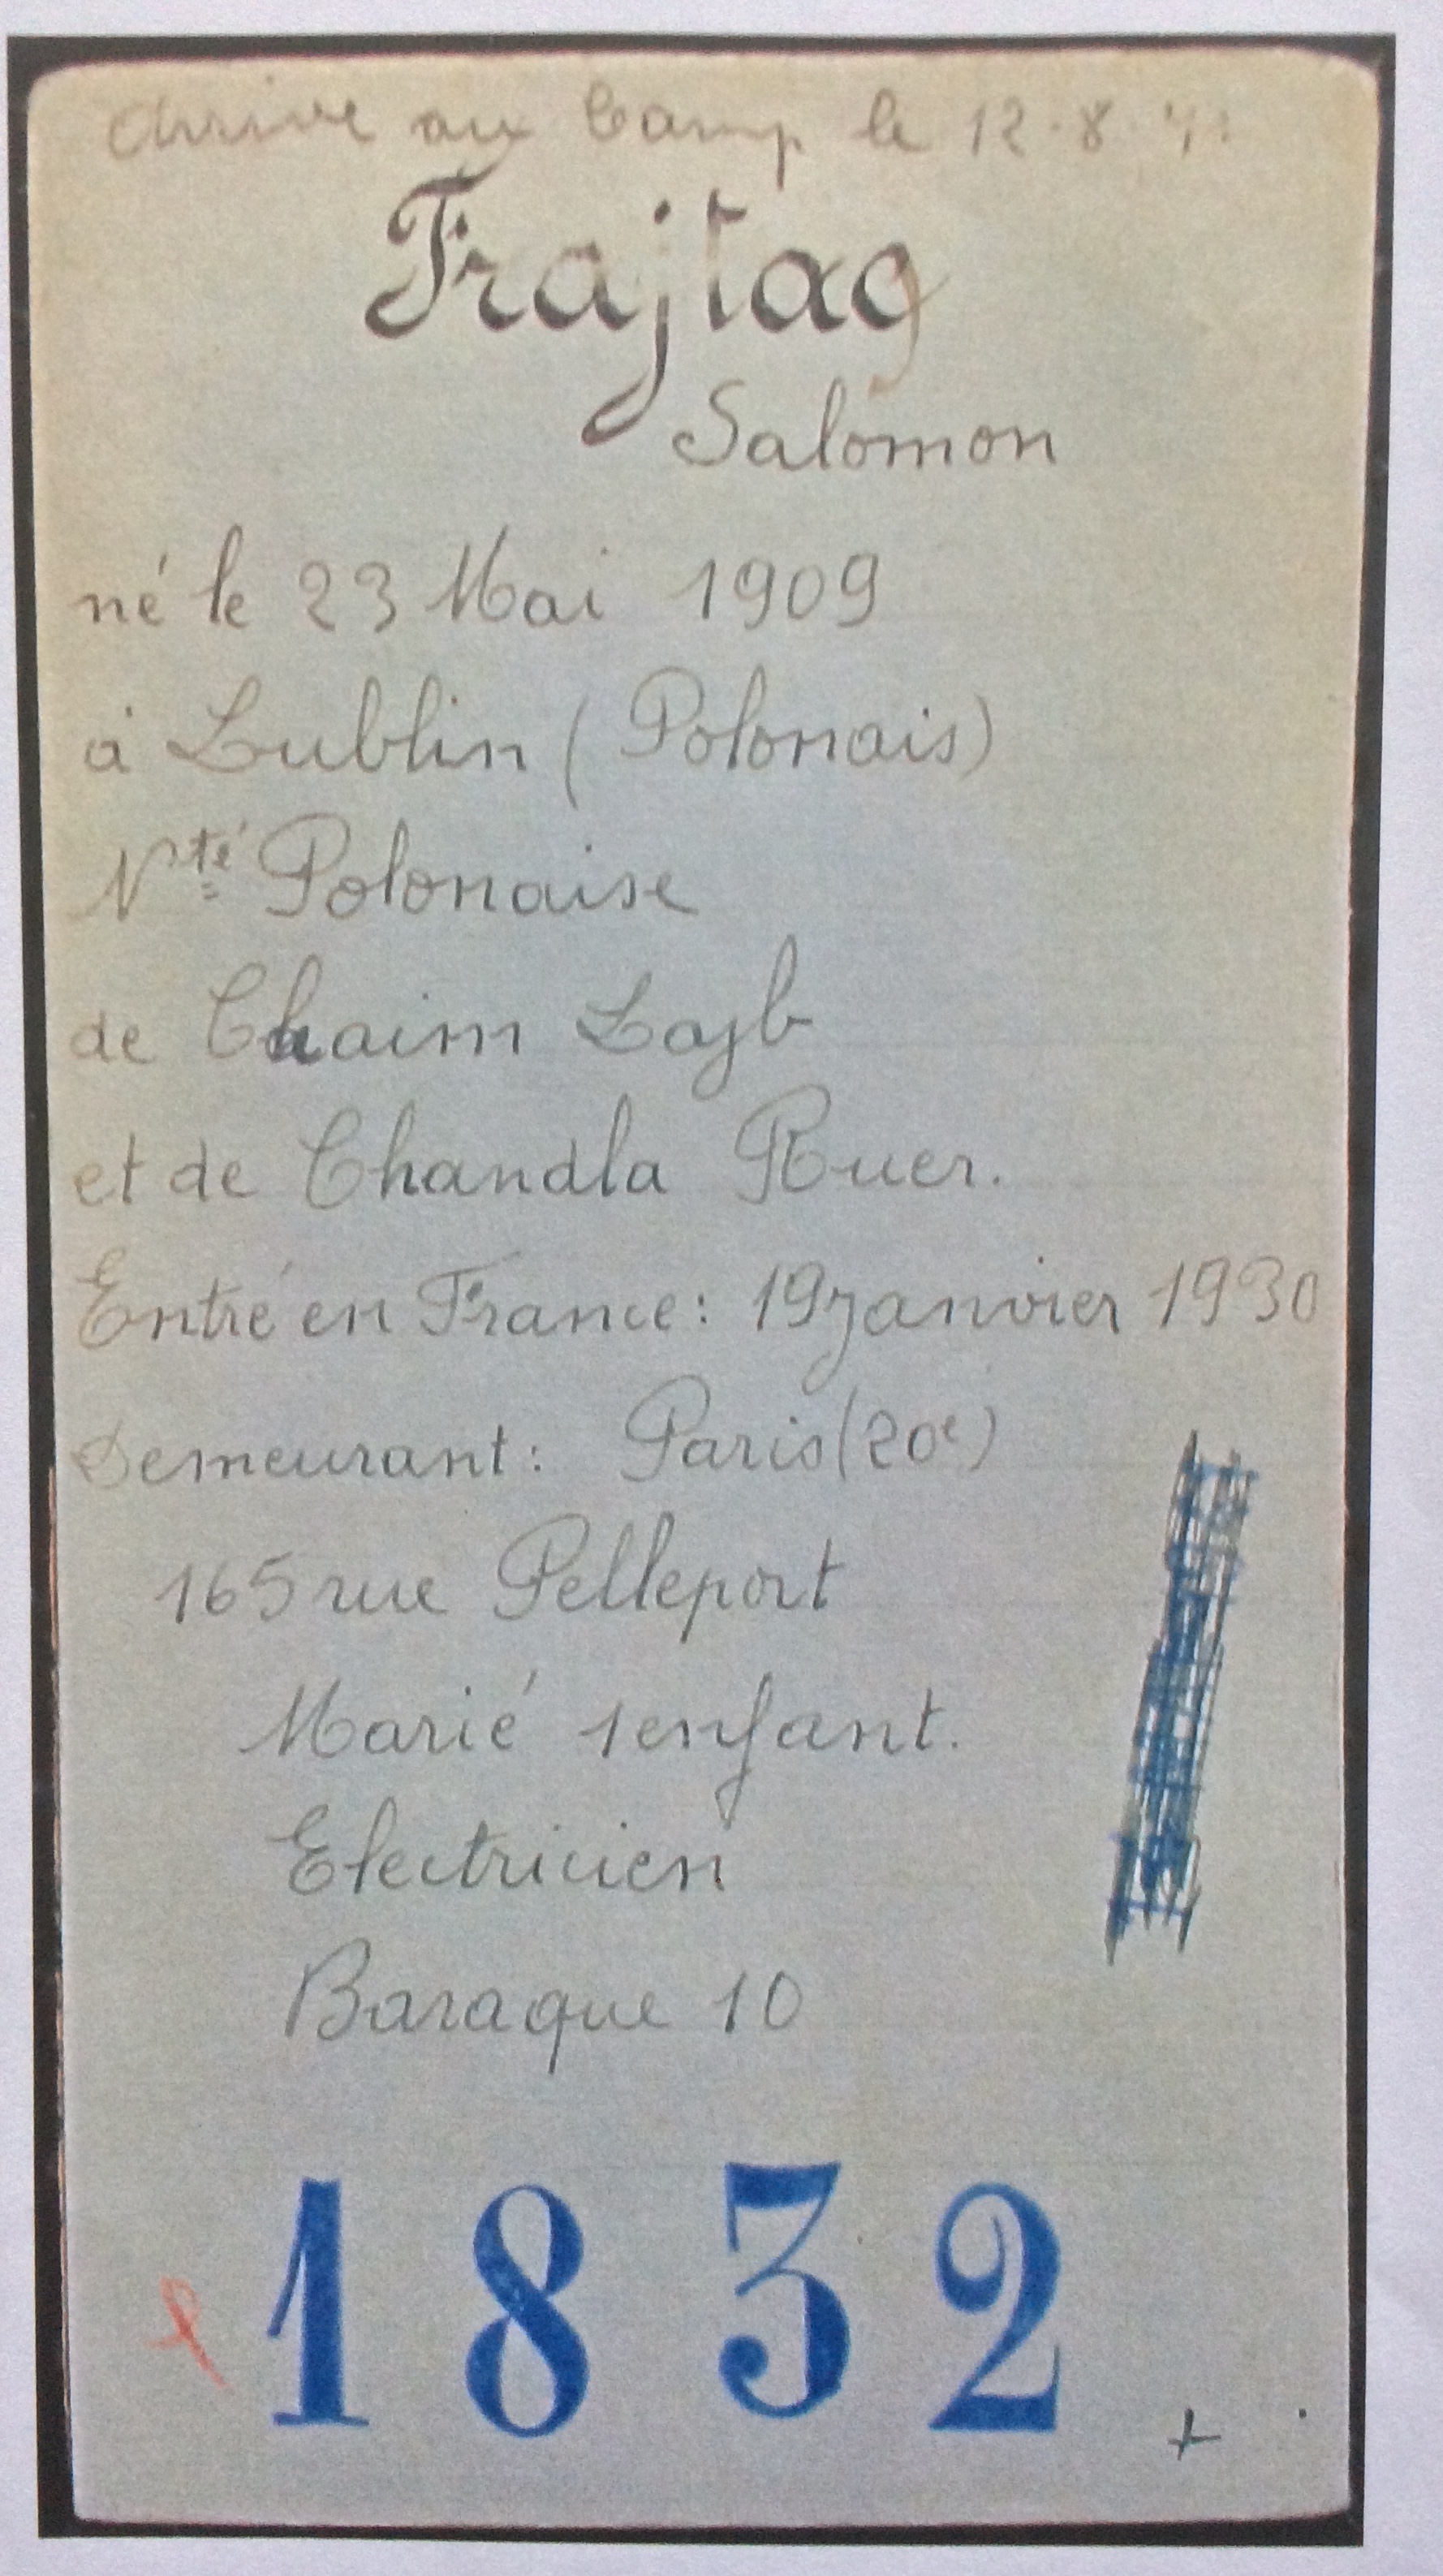 Arrivé au Camp le 12.8.41
Frajtag
Salomon
né le 23 Mai 1909
à Lublin (Polonais)
Nté Polonaise
de Chaim Lajb
et de Chandla Ruer.
Entré en France: 19 janvier 1930
Demeurant: Paris (20e)
165 rue Pelleport
Marié 1 enfant.
Electricien
Baraque 10
1832